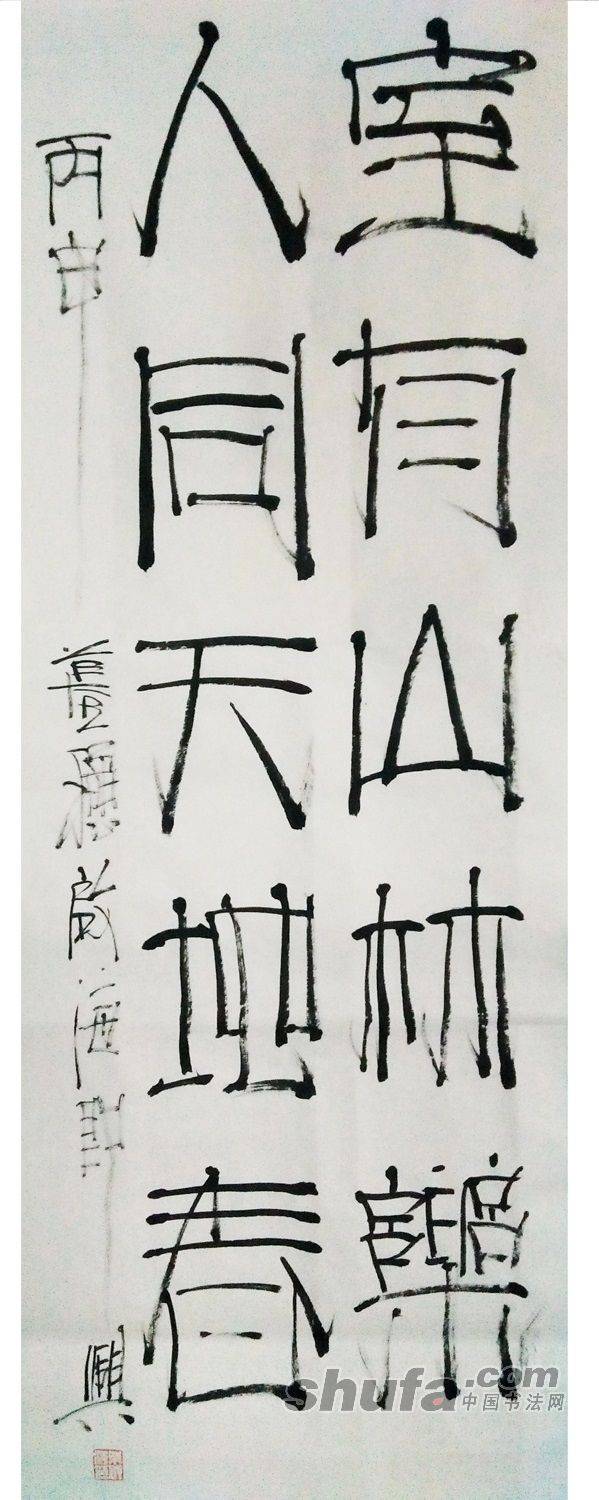 室有山林樂
人同天地春
丙申
興
shufa.com
中国书法网